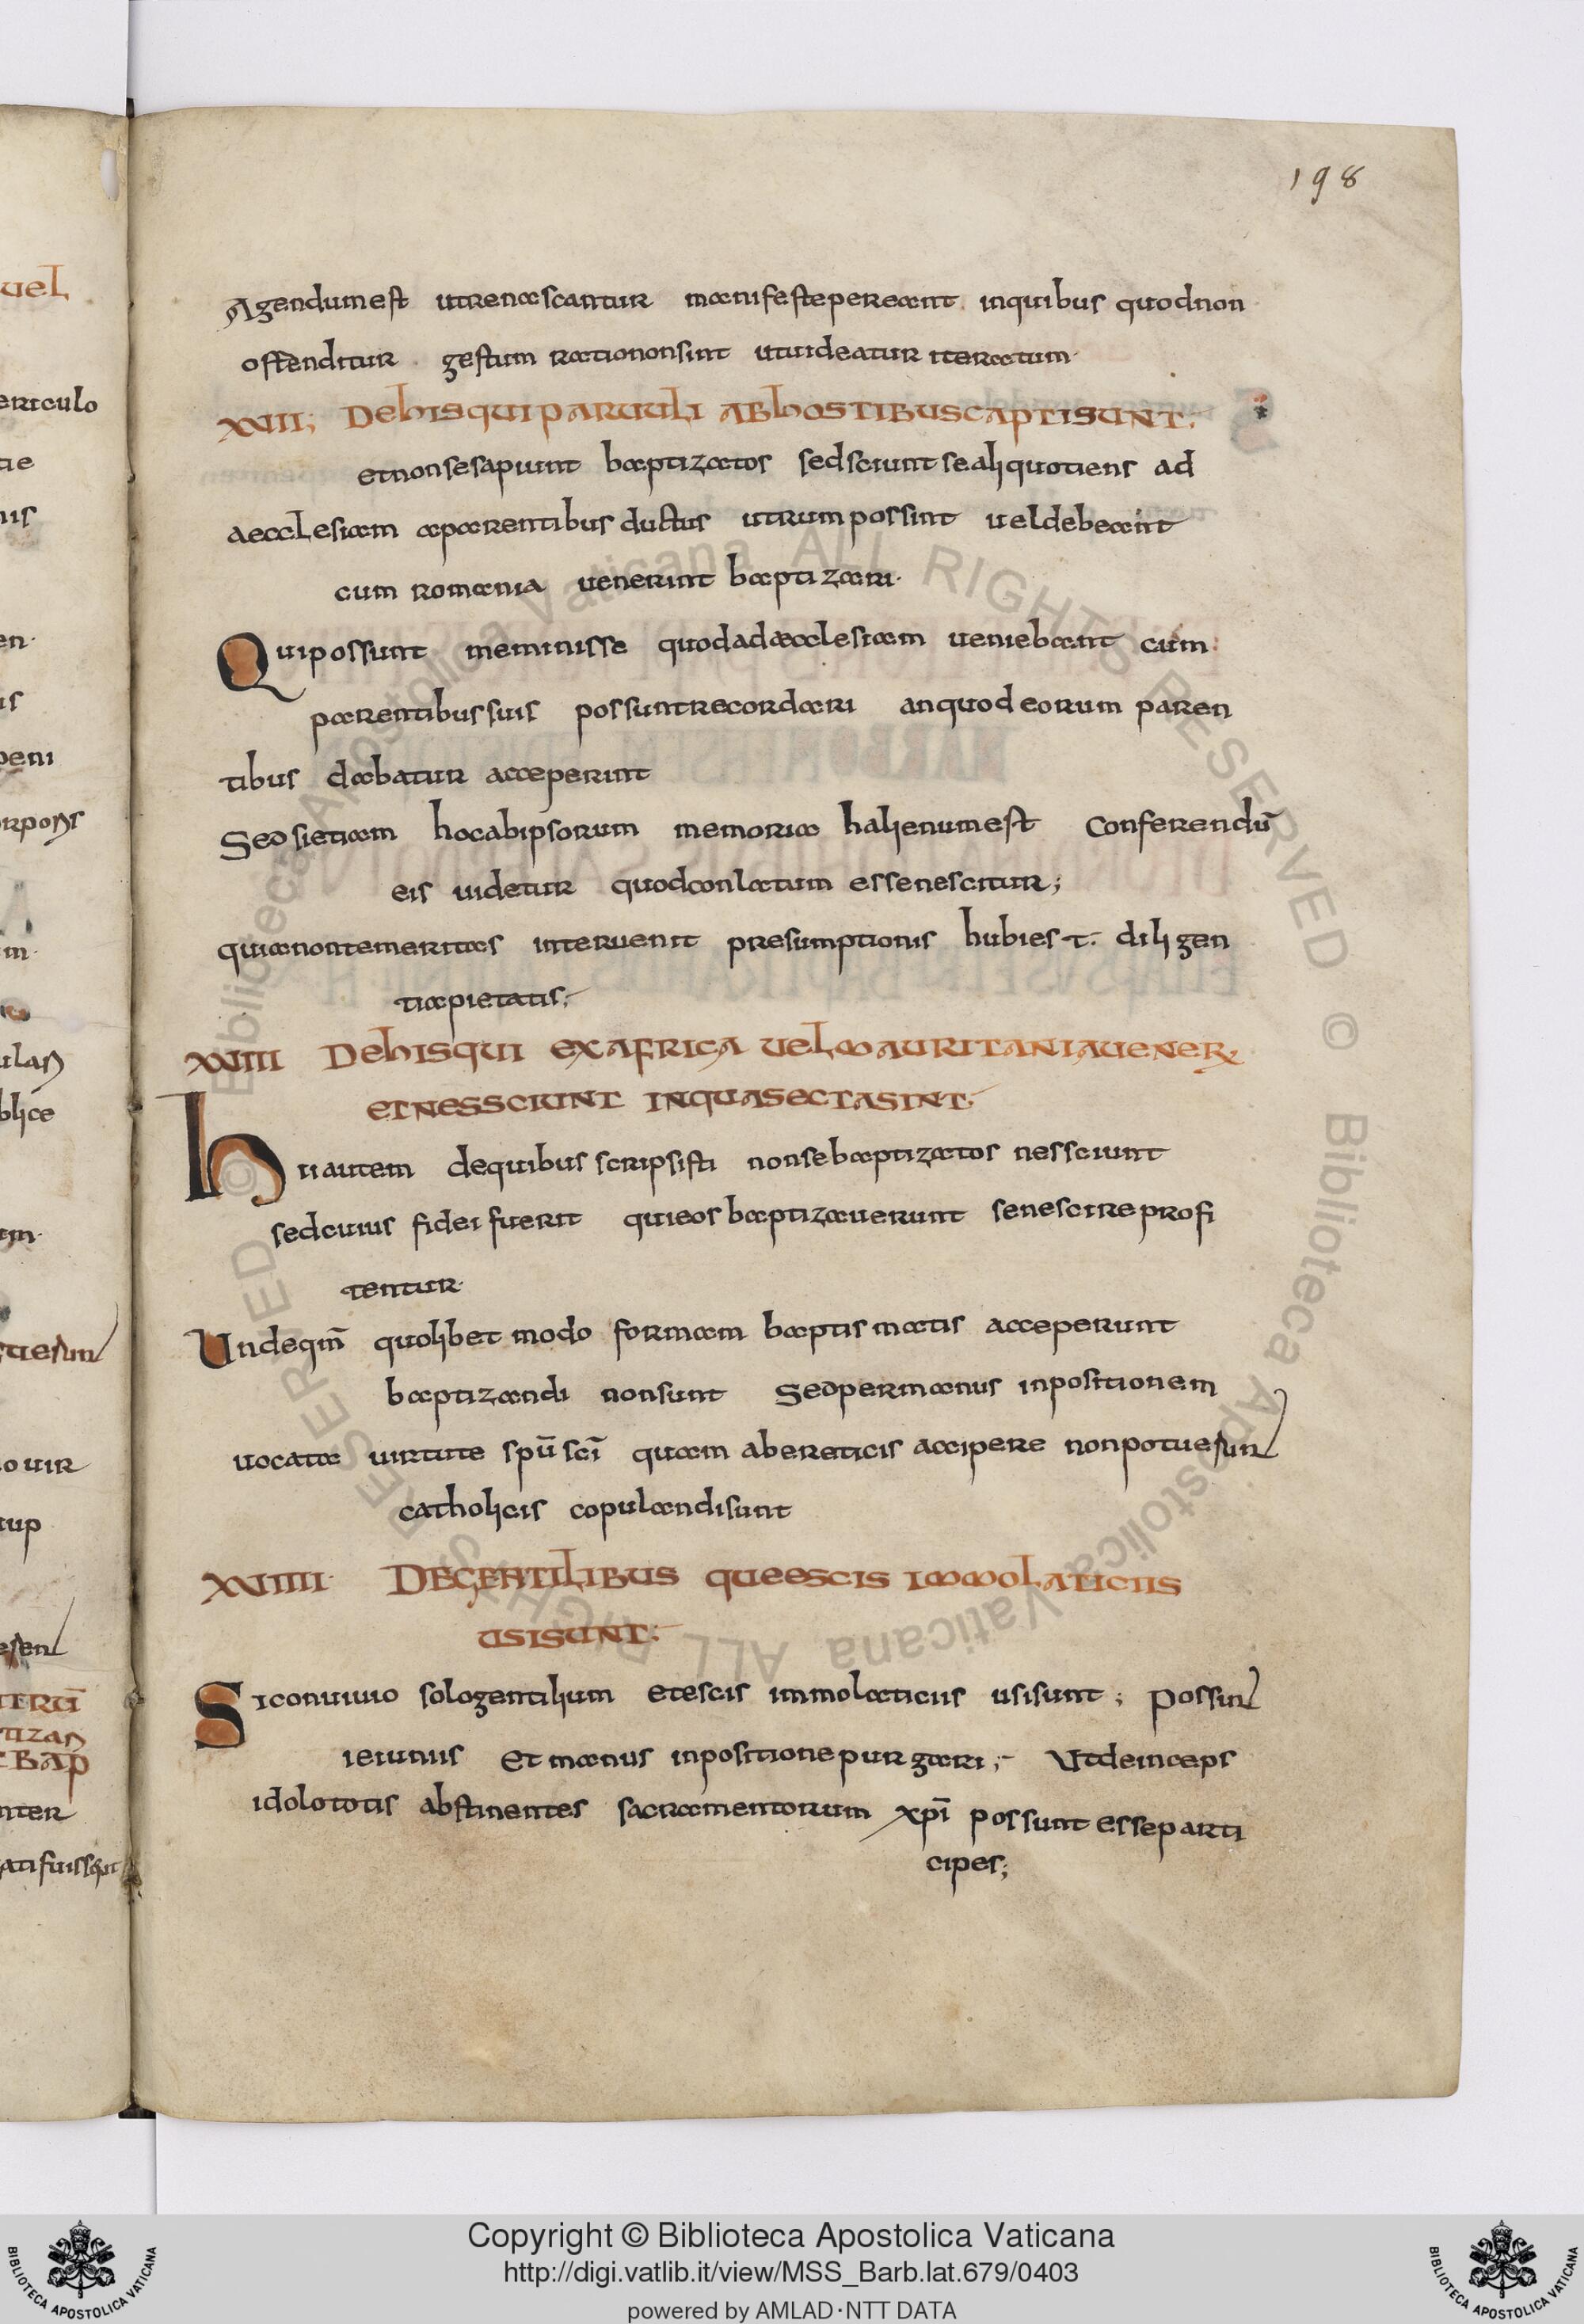 198
uel
Agendumest utrenascantur manifestepereant inquibus quodnon
offenditur gestum rationonsint utuideatur iteratum·
XVII; Dehisquiparuuli abhostibuscaptisunt;
ericulo
etnonsesapiunt baptizatos sedsciuntsealiquotiens ad
aecclesiam aparentibus ductus utrumpossint ueldebeant
cum romania uenerint baptizari·
Quipossunt meminisse quodadæcclesiam ueniebant cum
parentibussuis possuntrecordari anquodeorum paren
tibus dabatur acceperint
Sedsietiam hocabipsorum memoria halienumest Conferendū
eis uidetur quodconlatum essenescitur;
quianontemeritas interuenit presumptionis hubiest· diligen
tiapietatis;
XVIII Dehisqui exafrica uelmauritaniauener
etnessciunt inquasectasint·
hiiautem dequibus scripsisti nonsebaptizatos nessciunt
sedcuius fidei fuerit quieos baptizauerunt senescireprofi
tentur·
Undeqm̄ quolibet modo formam baptismatis acceperunt
baptizandi nonsunt Sedpermanus inpositionem
uocata uirtute spū scī quam abereticis accipere nonpotuerun
catholicis copulandisunt
XVIIII· Degentilibus queescis immolaticiis
usisunt;
Siconuiuio sologentilium etescis immolaticiis usisunt; possun
ieiuniis et manus inpositionepurgari; Utdeinceps
idolototis abstinentes sacramentorum xpī possunt esseparti
cipes;
Copyright © Biblioteca Apostolica Vaticana
http://digi.vatlib.it/view/MSS_Barb.lat.679/0403
powered by AMLAD·NTT DATA
BIBLIOTECA APOSTOLICA VATICANA
BIBLIOTECA APOSTOLICA VATICANA
© Biblioteca Apostolica Vaticana ALL RIGHTS RESERVED © Biblioteca Apostolica Vaticana ALL RIGHTS RESERVED